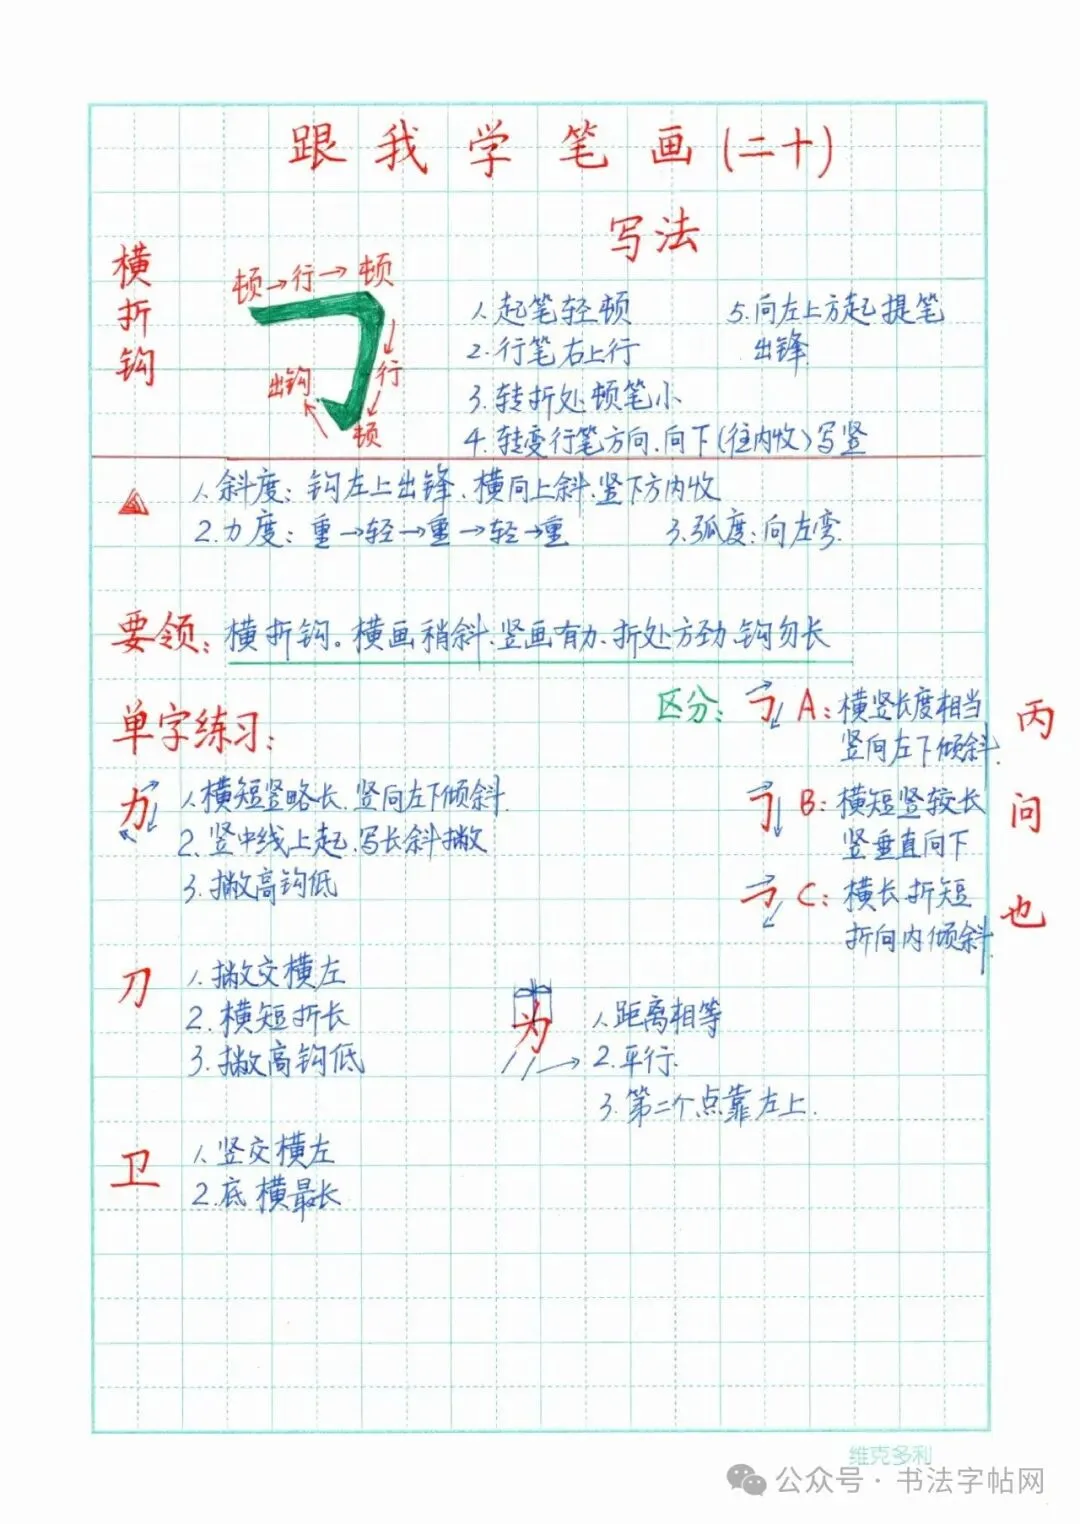 跟我学笔画(二十)
横折钩
写法
顿→行→顿
行
顿
出钩
1.起笔轻顿
2.行笔右上行
3.转折处顿笔小
4.转变行笔方向.向下(往内收)写竖
5.向左上方起提笔
出锋
1.斜度:钩左上出锋、横向上斜、竖下方内收
2.力度:重→轻→重→轻→重
3.弧度:向左弯.
要领:横折钩。横画稍斜、竖画有力、折处方劲、钩勿长
单字练习:
力
1.横短竖略长.竖向左下倾斜.
2.竖中线上起.写长斜撇
3.撇高钩低
刀
1.撇交横左
2.横短折长
3.撇高钩低
卫
1.竖交横左
2.底横最长
区分:
A:横竖长度相当
竖向左下倾斜.
丙
B:横短竖较长
竖垂直向下
问
C:横长折短
折向内倾斜.
也
为
1.距离相等
2.平行.
3.第二个点靠左上.
维克多利
公众号·书法字帖网